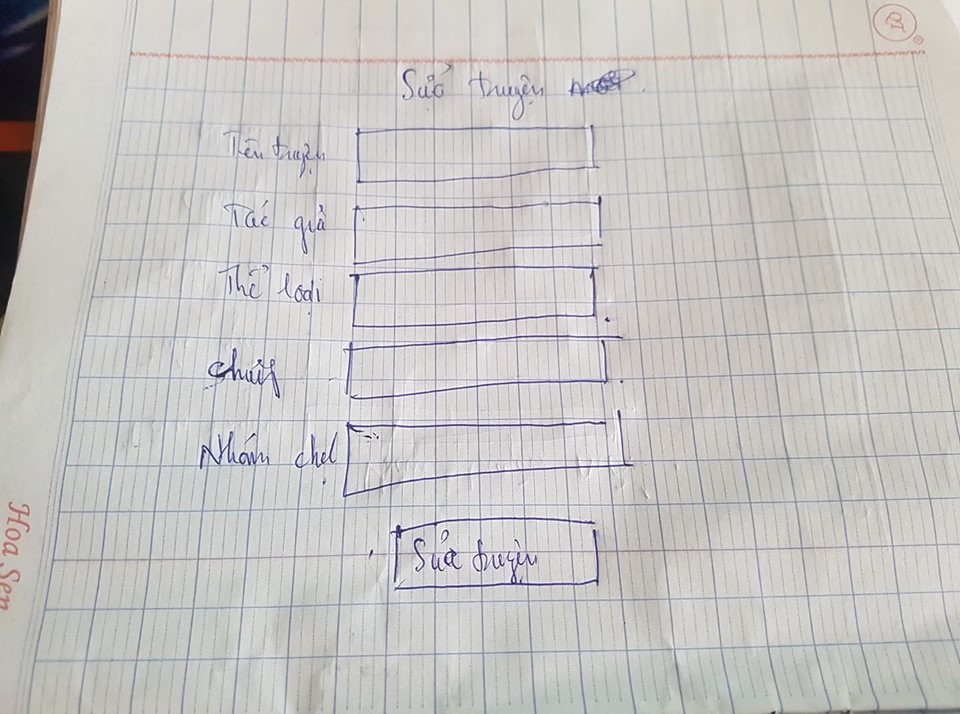 Sửa truyện
Tên truyện
Tác giả
Thể loại
Nhóm
Sửa truyện
Hoa Sen